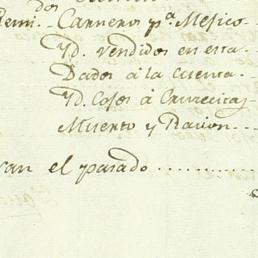 dos
demi.. Carneros p.ª Mexico
Yd. vendidos en esta
Dados á la Cuenta
Yd. Cojos á Cruzecitas
Muerto y Racion
van el pasado